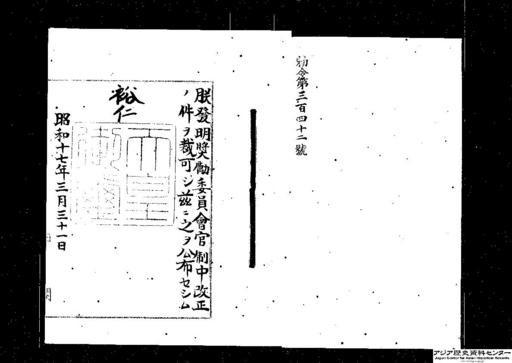 勅令第三百四十二號
朕發明奬勵委員會官制中改正
ノ件ヲ裁可シ茲ニ之ヲ公布セシム
裕仁
天皇御璽
昭和十七年三月三十一日
アジア歴史資料センター
Japan Center for Asian Historical Records